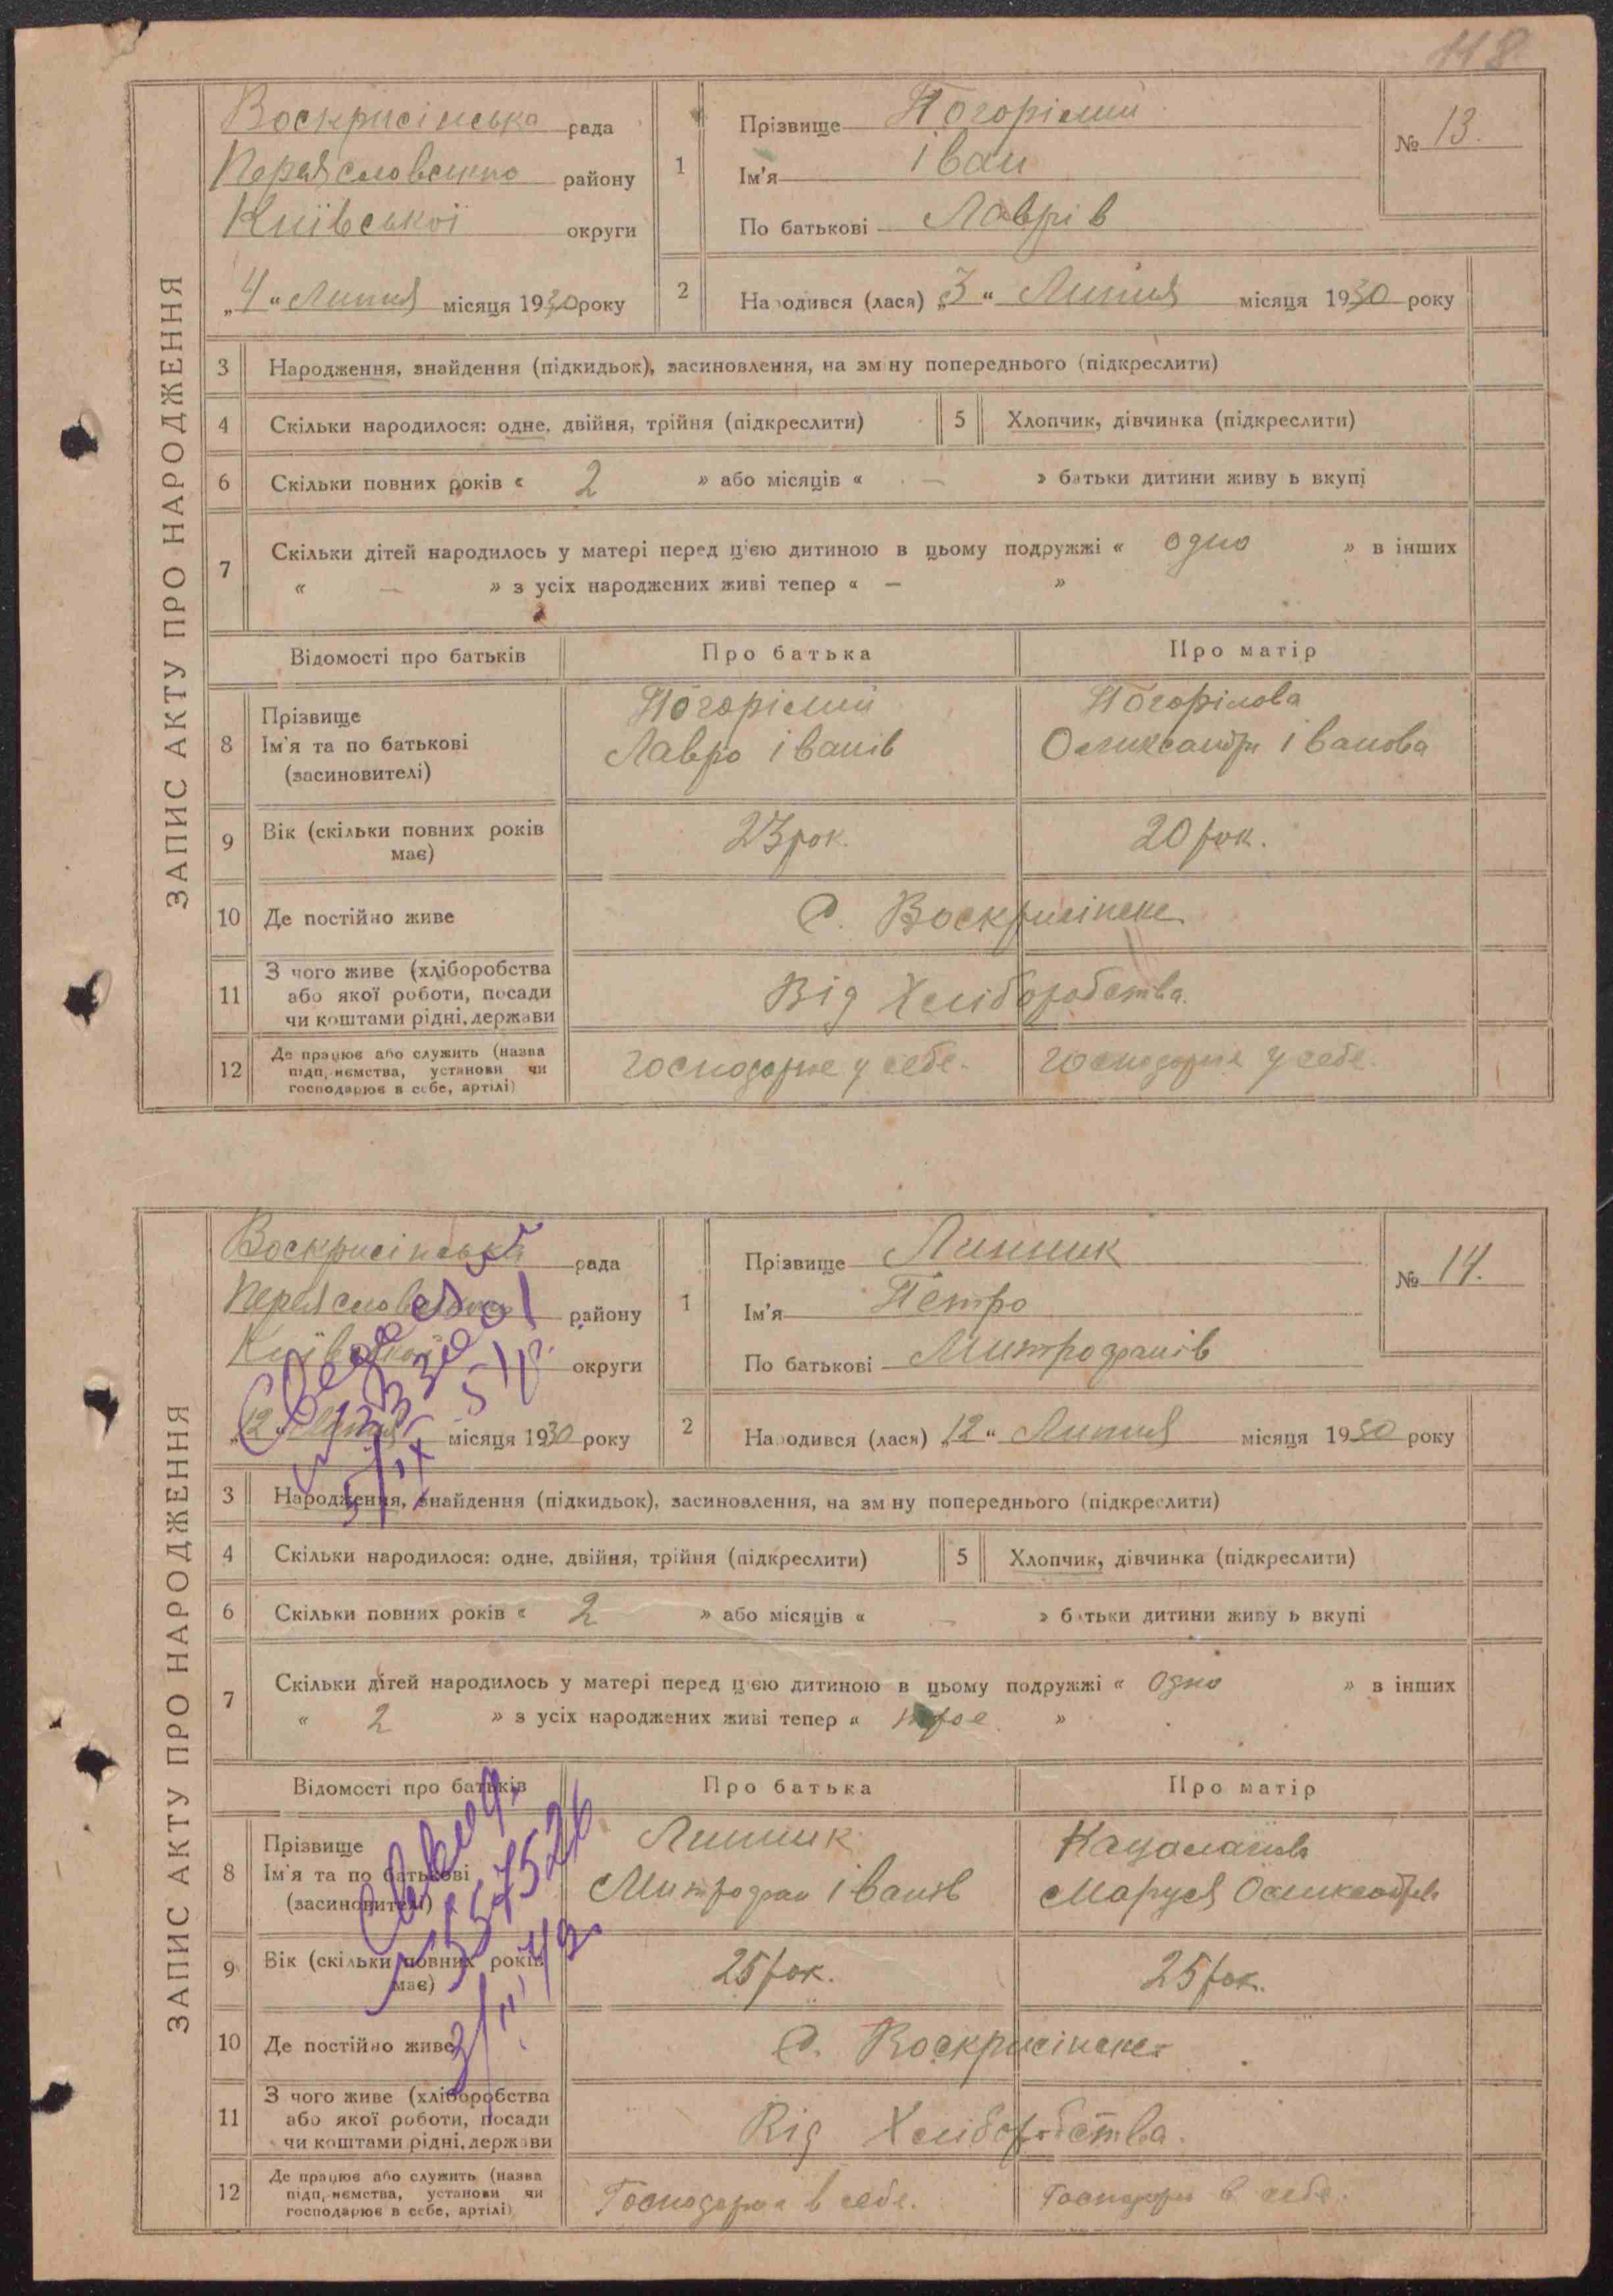 118
ЗАПИС АКТУ ПРО НАРОДЖЕННЯ
Воскрисінська рада
Переясловсько району
Київської округи
„4“ Липня місяця 1930 року
1
Прізвище Погорілий
Ім'я Іван
По батькові Лаврів
№ 13.
2 Народився (лася) „3“ Липня місяця 1930 року
3 Народження, знайдення (підкидьок), засиновлення, на зміну попереднього (підкреслити)
4 Скільки народилося: одне, двійня, трійня (підкреслити) 5 Хлопчик, дівчинка (підкреслити)
6 Скільки повних років « 2 » або місяців « — » батьки дитини живуть вкупі
7 Скільки дітей народилось у матері перед цією дитиною в цьому подружжі « одно » в інших
« — » з усіх народжених живі тепер « — »
Відомості про батьків Про батька Про матір
8 Прізвище
Ім'я та по батькові
(засиновителі)
Погорілий
Лавро Іванів
Погорілова
Оликсандри Іванова
9 Вік (скільки повних років має) 23 рок. 20 рок.
10 Де постійно живе С. Воскрисінске
11 З чого живе (хліборобства
або якої роботи, посади
чи коштами рідні, держави
Від Хліборобства.
12 Де працює або служить (назва
підприємства, установи чи
господарює в себе, артілі)
господарює у себе. господарює у себе.
ЗАПИС АКТУ ПРО НАРОДЖЕННЯ
Воскрисінська рада
району
Київської округи
„12“ Липня місяця 1930 року
1
Прізвище Линник
Ім'я Петро
По батькові Митрофанів
№ 14.
2 Народився (лася) „12“ Липня місяця 1930 року
3 Народження, знайдення (підкидьок), засиновлення, на зміну попереднього (підкреслити)
4 Скільки народилося: одне, двійня, трійня (підкреслити) 5 Хлопчик, дівчинка (підкреслити)
6 Скільки повних років « 2 » або місяців « — » батьки дитини живуть вкупі
7 Скільки дітей народилось у матері перед цією дитиною в цьому подружжі « Одно » в інших
« 2 » з усіх народжених живі тепер « троє »
Відомості про батьків Про батька Про матір
8 Прізвище
Ім'я та по батькові
(засиновителі)
Линник
Митрофан Іванів
Маруся
9 Вік (скільки повних років має) 25 рок. 25 рок.
10 Де постійно живе С. Воскрисінске
11 З чого живе (хліборобства
або якої роботи, посади
чи коштами рідні, держави
Від Хліборобства.
12 Де працює або служить (назва
підприємства, установи чи
господарює в себе, артілі)
Господарює в себе. Господарює в себе.